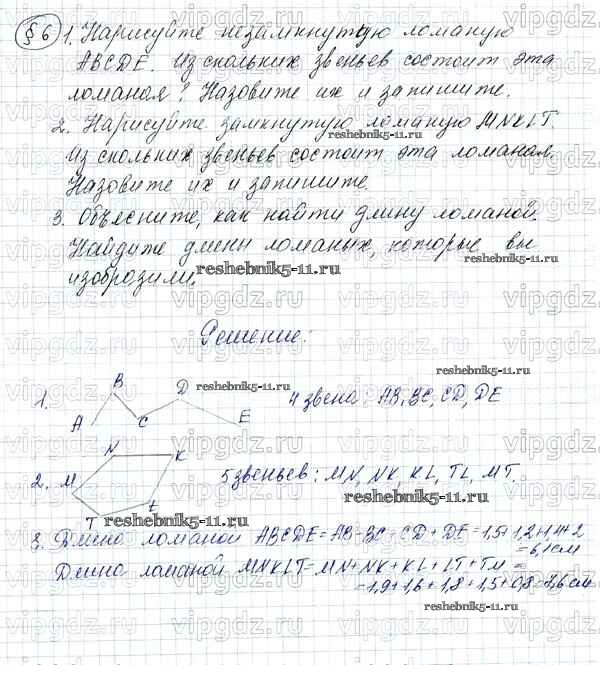 §6 1. Нарисуйте незамкнутую ломаную
ABCDE. Из скольких звеньев состоит эта
ломаная? Назовите их и запишите.
2. Нарисуйте замкнутую ломаную MNKLT.
reshebnik5-11.ru
Из скольких звеньев состоит эта ломаная.
Назовите их и запишите.
3. Объясните, как найти длину ломаной.
Найдите длины ломаных, которые вы
reshebnik5-11.ru
изобразили.
reshebnik5-11.ru
Решение:
reshebnik5-11.ru
1. A B C D E 4 звена: AB, BC, CD, DE
reshebnik5-11.ru
2. M N K L T 5 звеньев: MN, NK, KL, TL, MT.
reshebnik5-11.ru
reshebnik5-11.ru
3. Длина ломаной ABCDE = AB + BC + CD + DE = 1,5+1,2+1,4+2
= 6,1 см
Длина ломаной MNKLT = MN + NK + KL + LT + TM =
= 1,9 + 1,6 + 1,8 + 1,5 + 0,8 = 7,6 см
reshebnik5-11.ru
vipgdz.ru